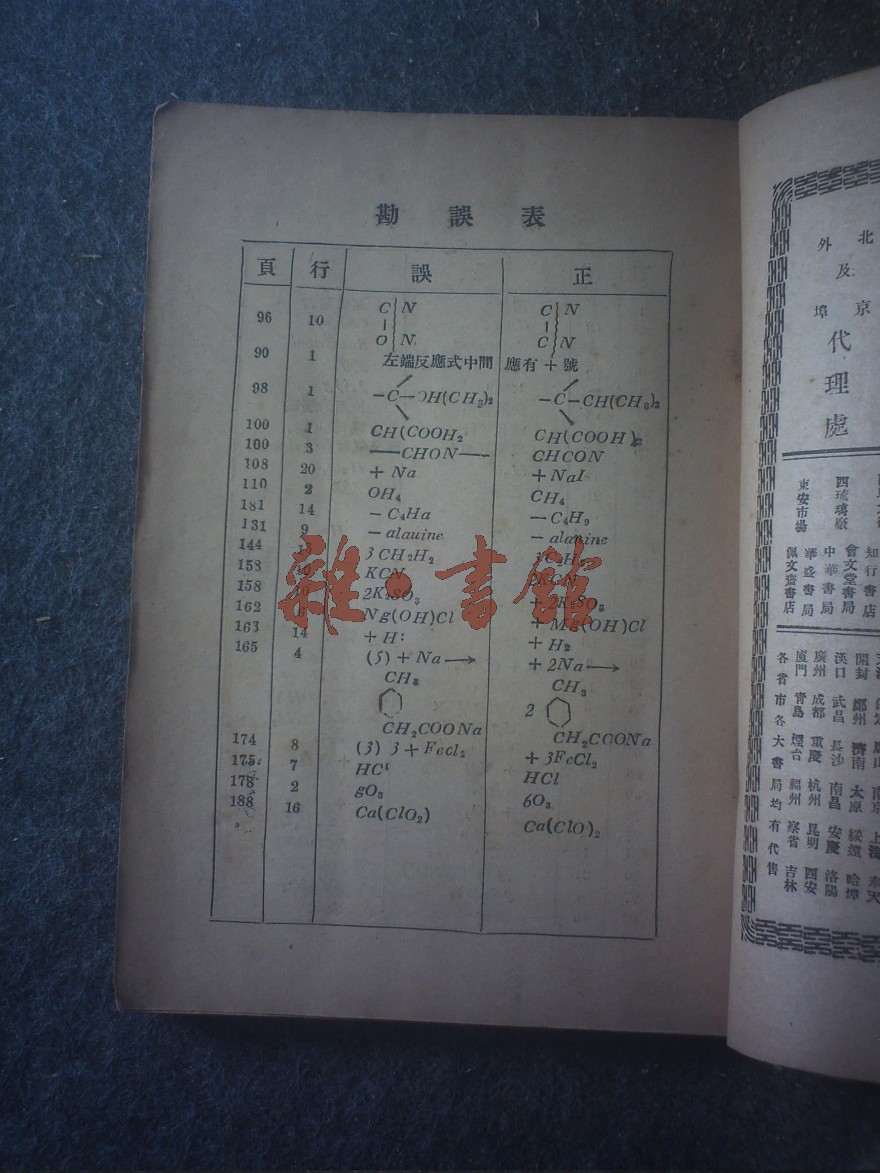 勘 誤 表
頁 行 誤 正
96 10 C N - O N C N - C N
90 1 左端反應式中間 應有 + 號
98 1 -C-OH(CH₃)₂ -C-CH(CH₃)₂
100 1 CH(COOH₂ CH(COOH)₂
100 3 —CHON— CHCON
108 20 + Na + NaI
110 2 OH₄ CH₄
181 14 -C₄Ha -C₄H₉
131 9 -alauine -alanine
144 3CH₂H₂
153 KCN 2KCN
158 2K₂SO₃ + 2K₂SO₃
162 Ng(OH)Cl + Mg(OH)Cl
163 14 + H: + H₂
165 4 (5) + Na → + 2Na →
CH₃ CH₃
2
CH₂COONa CH₂COONa
174 8 (3) 3 + FeCl₂ + 3FeCl₂
175 7 HCl HCl
178 2 gO₃ 6O₃
188 16 Ca(ClO₂) Ca(ClO)₂
雜·書館
北京
及
外埠
代理處
西琉璃廠
東安市場
知行書店
會文堂書局
中華書局
華盛書局
佩文齋書店
開封 鄭州 濟南 太原 綏遠 哈埠
漢口 武昌 長沙 南昌 安慶 洛陽
廣州 成都 重慶 杭州 昆明 西安
廈門 青島 煙台 福州 察省 吉林
各省市各大書局均有代售